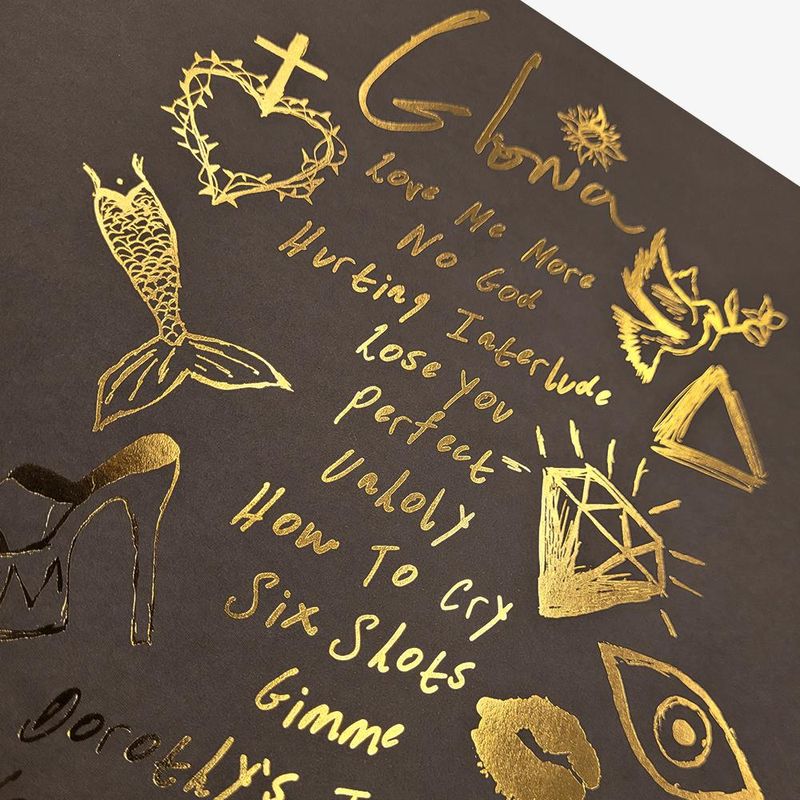 Gloria
Love Me More
No God
Hurting Interlude
Lose You
Perfect
Unholy
How To Cry
Six Shots
Gimme
Dorothy's
M